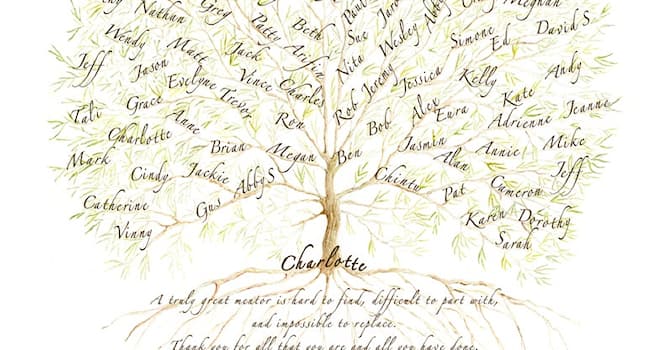 Nathan Greg Patty Beth Sue Abby Meghan
Wendy Matt Jack Arifin Nita Wesley Simone Ed David S
Jeff Jason Evelyne Vince Charles Rob Jeremy Jessica Kelly Andy
Tali Grace Anne Trevor Ron Bob Alex Eura Kate Adrienne Jeanne
Charlotte Brian Megan Ben Jasmin Alan Annie Mike
Mark Cindy Jackie Abby S Chintu Pat Cameron Jeff
Catherine Gus Karen Dorothy
Vinny Sarah
Charlotte
A truly great mentor is hard to find, difficult to part with,
and impossible to replace.
Thank you for all that you are and all you have done.